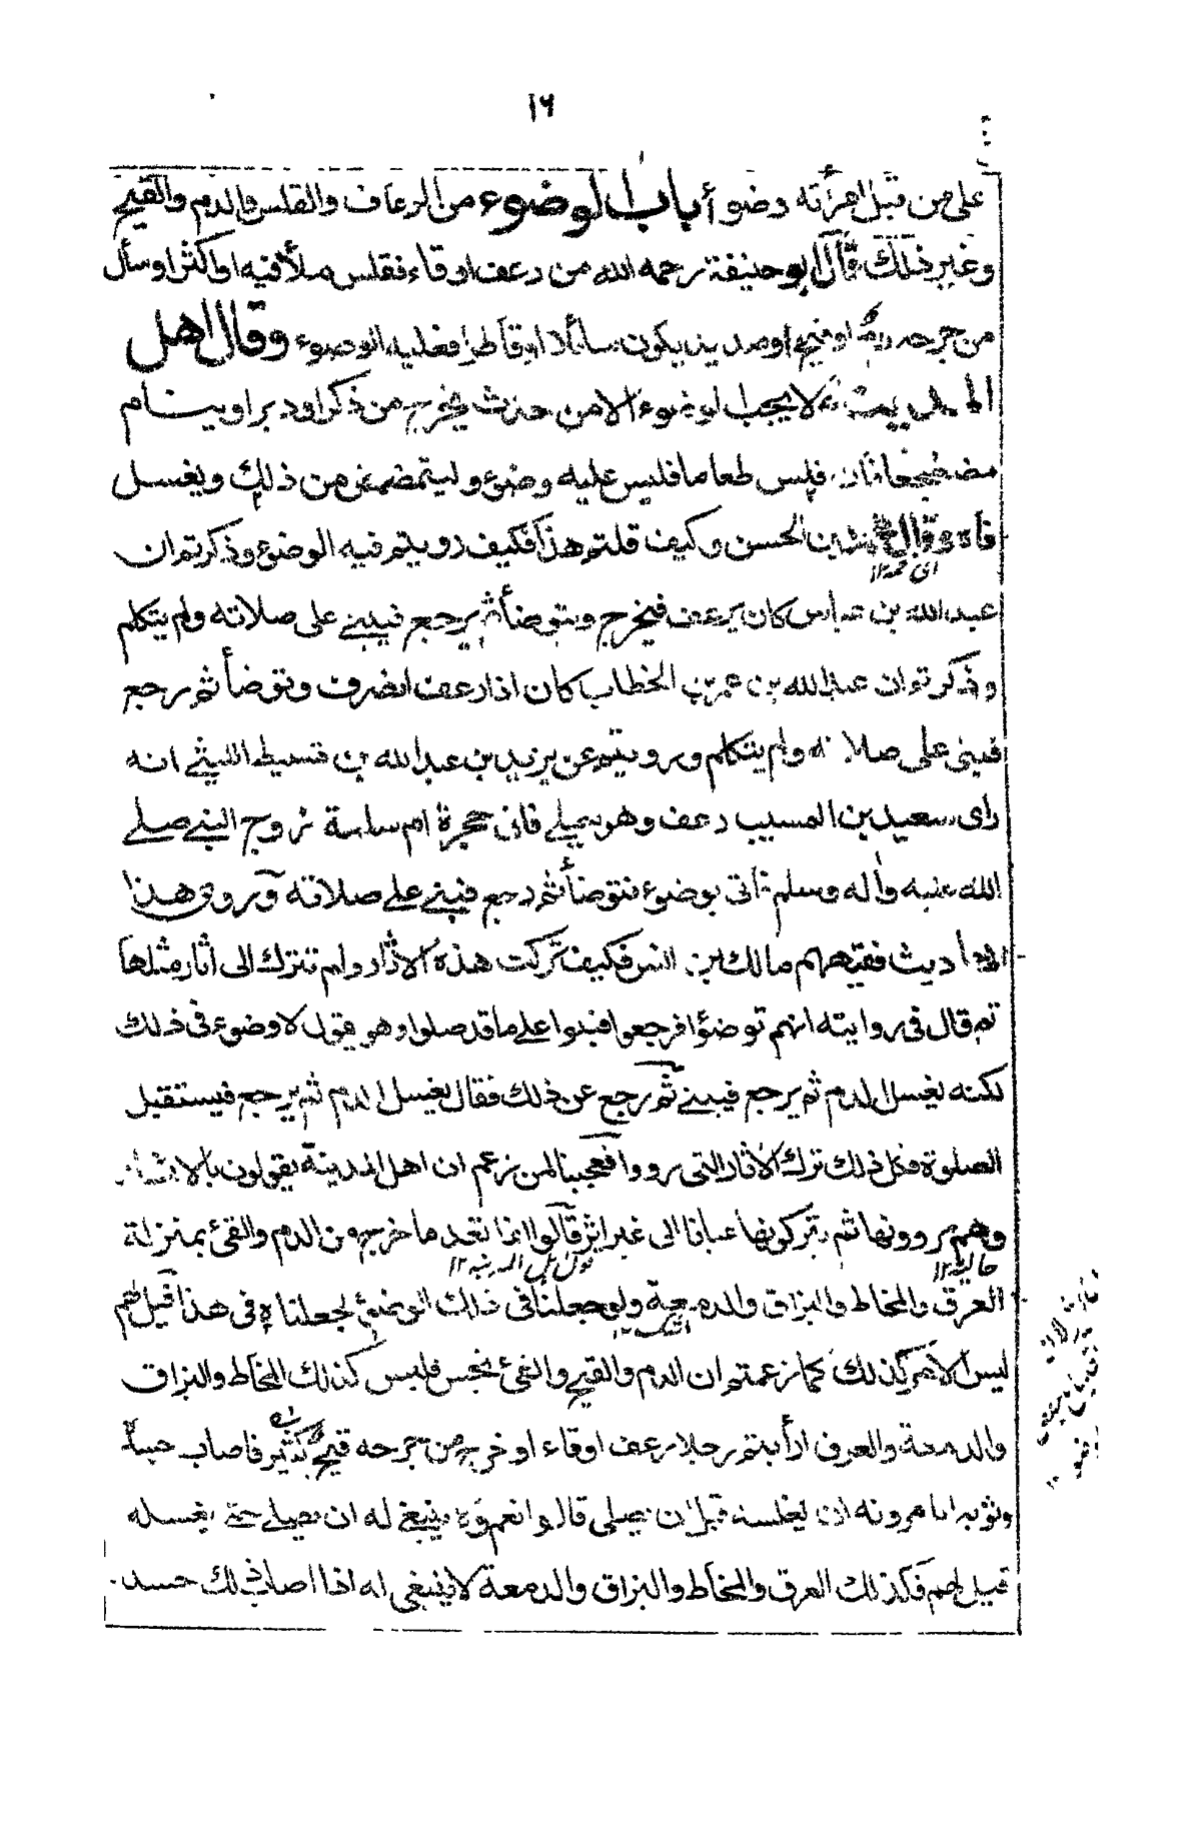 ١٦
على من قبل امرأته وضوأ باب الوضوء من الرعاف والقلس والدم والقيح
وغير ذلك قال ابو حنيفة رحمه الله من رعف او قاء فقلس ملأ فيه او اكثر او سأل
من جرحه دم او قيح او صديد يكون سائلا او قاطرا فعليه الوضوء وقال اهل
المدينة لا يجب الوضوء الا من حدث يخرج من ذكر او دبر او ينام
مضطجعا فان قلس طعاما فليس عليه وضوء وليتمضمض من ذلك ويغسل
فاه وقال محمد بن الحسن وكيف قلتم هذا فكيف رويتم فيه الوضوء وذكرتم ان
اى محمد ١٢
عبد الله بن عباس كان يرعف فيخرج ويتوضأ ثم يرجع فيبنے على صلاته ولم يتكلم
وذكرتم ان عبد الله بن عمر بن الخطاب كان اذا رعف انصرف وتوضأ ثم رجع
فبنى على صلاته ولم يتكلم ورويتم عن يزيد بن عبد الله بن قسيط الليثے انه
راى سعيد بن المسيب رعف وهو يصلے فاتى حجرة ام سلمة زوج النبے صلے
الله عليه واله وسلم فاتى بوضوء فتوضأ ثم رجع فبنے علے صلاته وروى هذا
الاحاديث فقيههم مالك بن انس فكيف تركت هذه الاثار ولم تترك الى اثار مثلها
ثم قال فى روايته انهم توضؤا فرجعوا فبنوا علے ما قد صلوا وهو يقول لا وضوء فى ذلك
لكنه يغسل الدم ثم يرجع فيبنے ثم رجع عن ذلك فقال يغسل الدم ثم يرجع فيستقبل
الصلوة فكل ذلك ترك الاثار التى رووا فعجبنا لمن زعم ان اهل المدينة يقولون بالاثار
وهم يروونها ثم يتركونها عيانا الى غير اثر قالوا انما نعد ما خرج من الدم والقئ بمنزلة
قول اهل المدينة ١٢
العرق والمخاط والبزاق والدمعة ولو جعلنا فى ذلك الوضوء لجعلناه فى هذا قيل لهم
ليس الامر كذلك كما زعمتم ان الدم والقيح والقئ نجس فليس كذلك المخاط والبزاق
والدمعة والعرق ارأيتم رجلا رعف او قاء او خرج من جرحه قيح كثير فاصاب جسده
وثوبه اتامرونه ان يغسله قبل ان يصلى قالوا نعم ينبغے له ان يصلے حتے يغسله
قيل لهم فكذلك العرق والمخاط والبزاق والدمعة لا ينبغى له اذا اصاب ذلك جسده